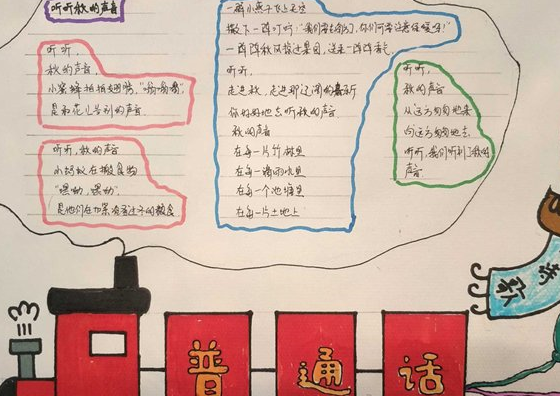 听听秋的声音
听听，
秋的声音，
小蜜蜂拍拍翅膀，"嗡嗡嗡"，
是和花儿告别的声音.
听听，秋的声音
小蚂蚁在搬食物
"嘿呦，嘿呦"，
是他们在加紧准备过冬的粮食
一群小燕子飞上天空
撒下一阵叮咛："我们要去南方，你们可要注意保暖呀！"
一阵阵秋风掠过果园，送来一阵阵清香
听听，
走进秋，走进那辽阔的音乐厅
你好好地去听秋的声音.
秋的声音
在每一片竹林里
在每一滴雨水里
在每一个池塘里
在每一片土地上
听听，
秋的声音
从远方匆匆地来
向远方匆匆地去
听听，我们听到了秋的
声音
普通话